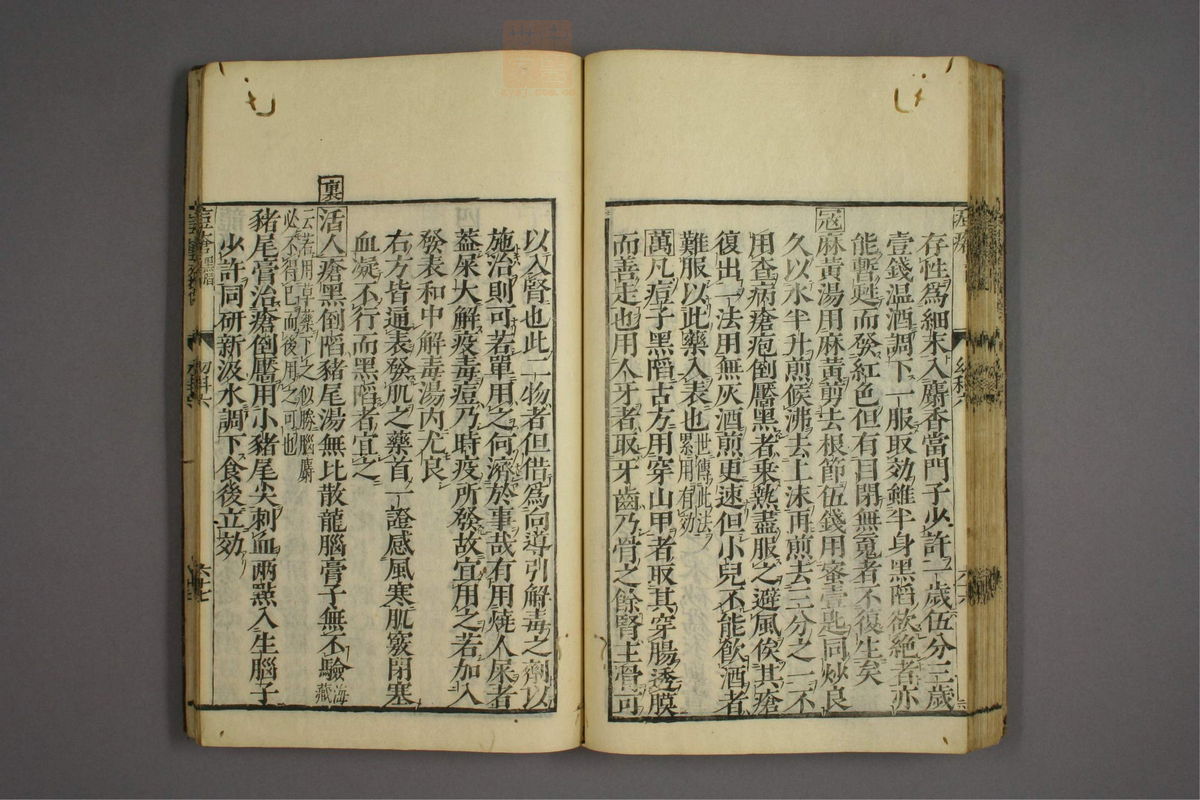 存性爲細末入麝香當門子少許一歲伍分三歲
壹錢温酒調下一服取効雖半身黑陷欲絶者亦
能暫甦而發紅色但有目閉無䰟者不復生矣
寇麻黃湯用麻黃剪去根節伍錢用蜜壹匙同炒良
久以水半升煎候沸去上沫再煎去三分之一不
用查病瘡疱倒靨黑者乗熱盡服之避風俟其瘡
復出一法用無灰酒煎更速但小兒不能飲酒者
難服以此藥入表也世傳此法累用有効
萬凡痘子黑陷古方用穿山甲者取其穿腸透膜
而善走也用人牙者取牙齒乃骨之餘腎主骨可
以入腎也此二物者但借爲向導引解毒之劑以
施治則可若單用之何濟於事哉有用燒人屎者
蓋屎大解疫毒痘乃時疫所發故宜用之若加入
發表和中解毒湯内尤良
右方皆通表發肌之藥首一證感風寒肌竅閉塞
血凝不行而黑陷者宜之
裏
活人瘡黑倒陷豬尾湯無比散龍腦膏子無不驗海藏
云若用草藥下之似勝腦麝
必不得已而後用之可也
豬尾膏治瘡倒靨用小豬尾尖刺血兩㸃入生腦子
少許同研新汲水調下食後立効